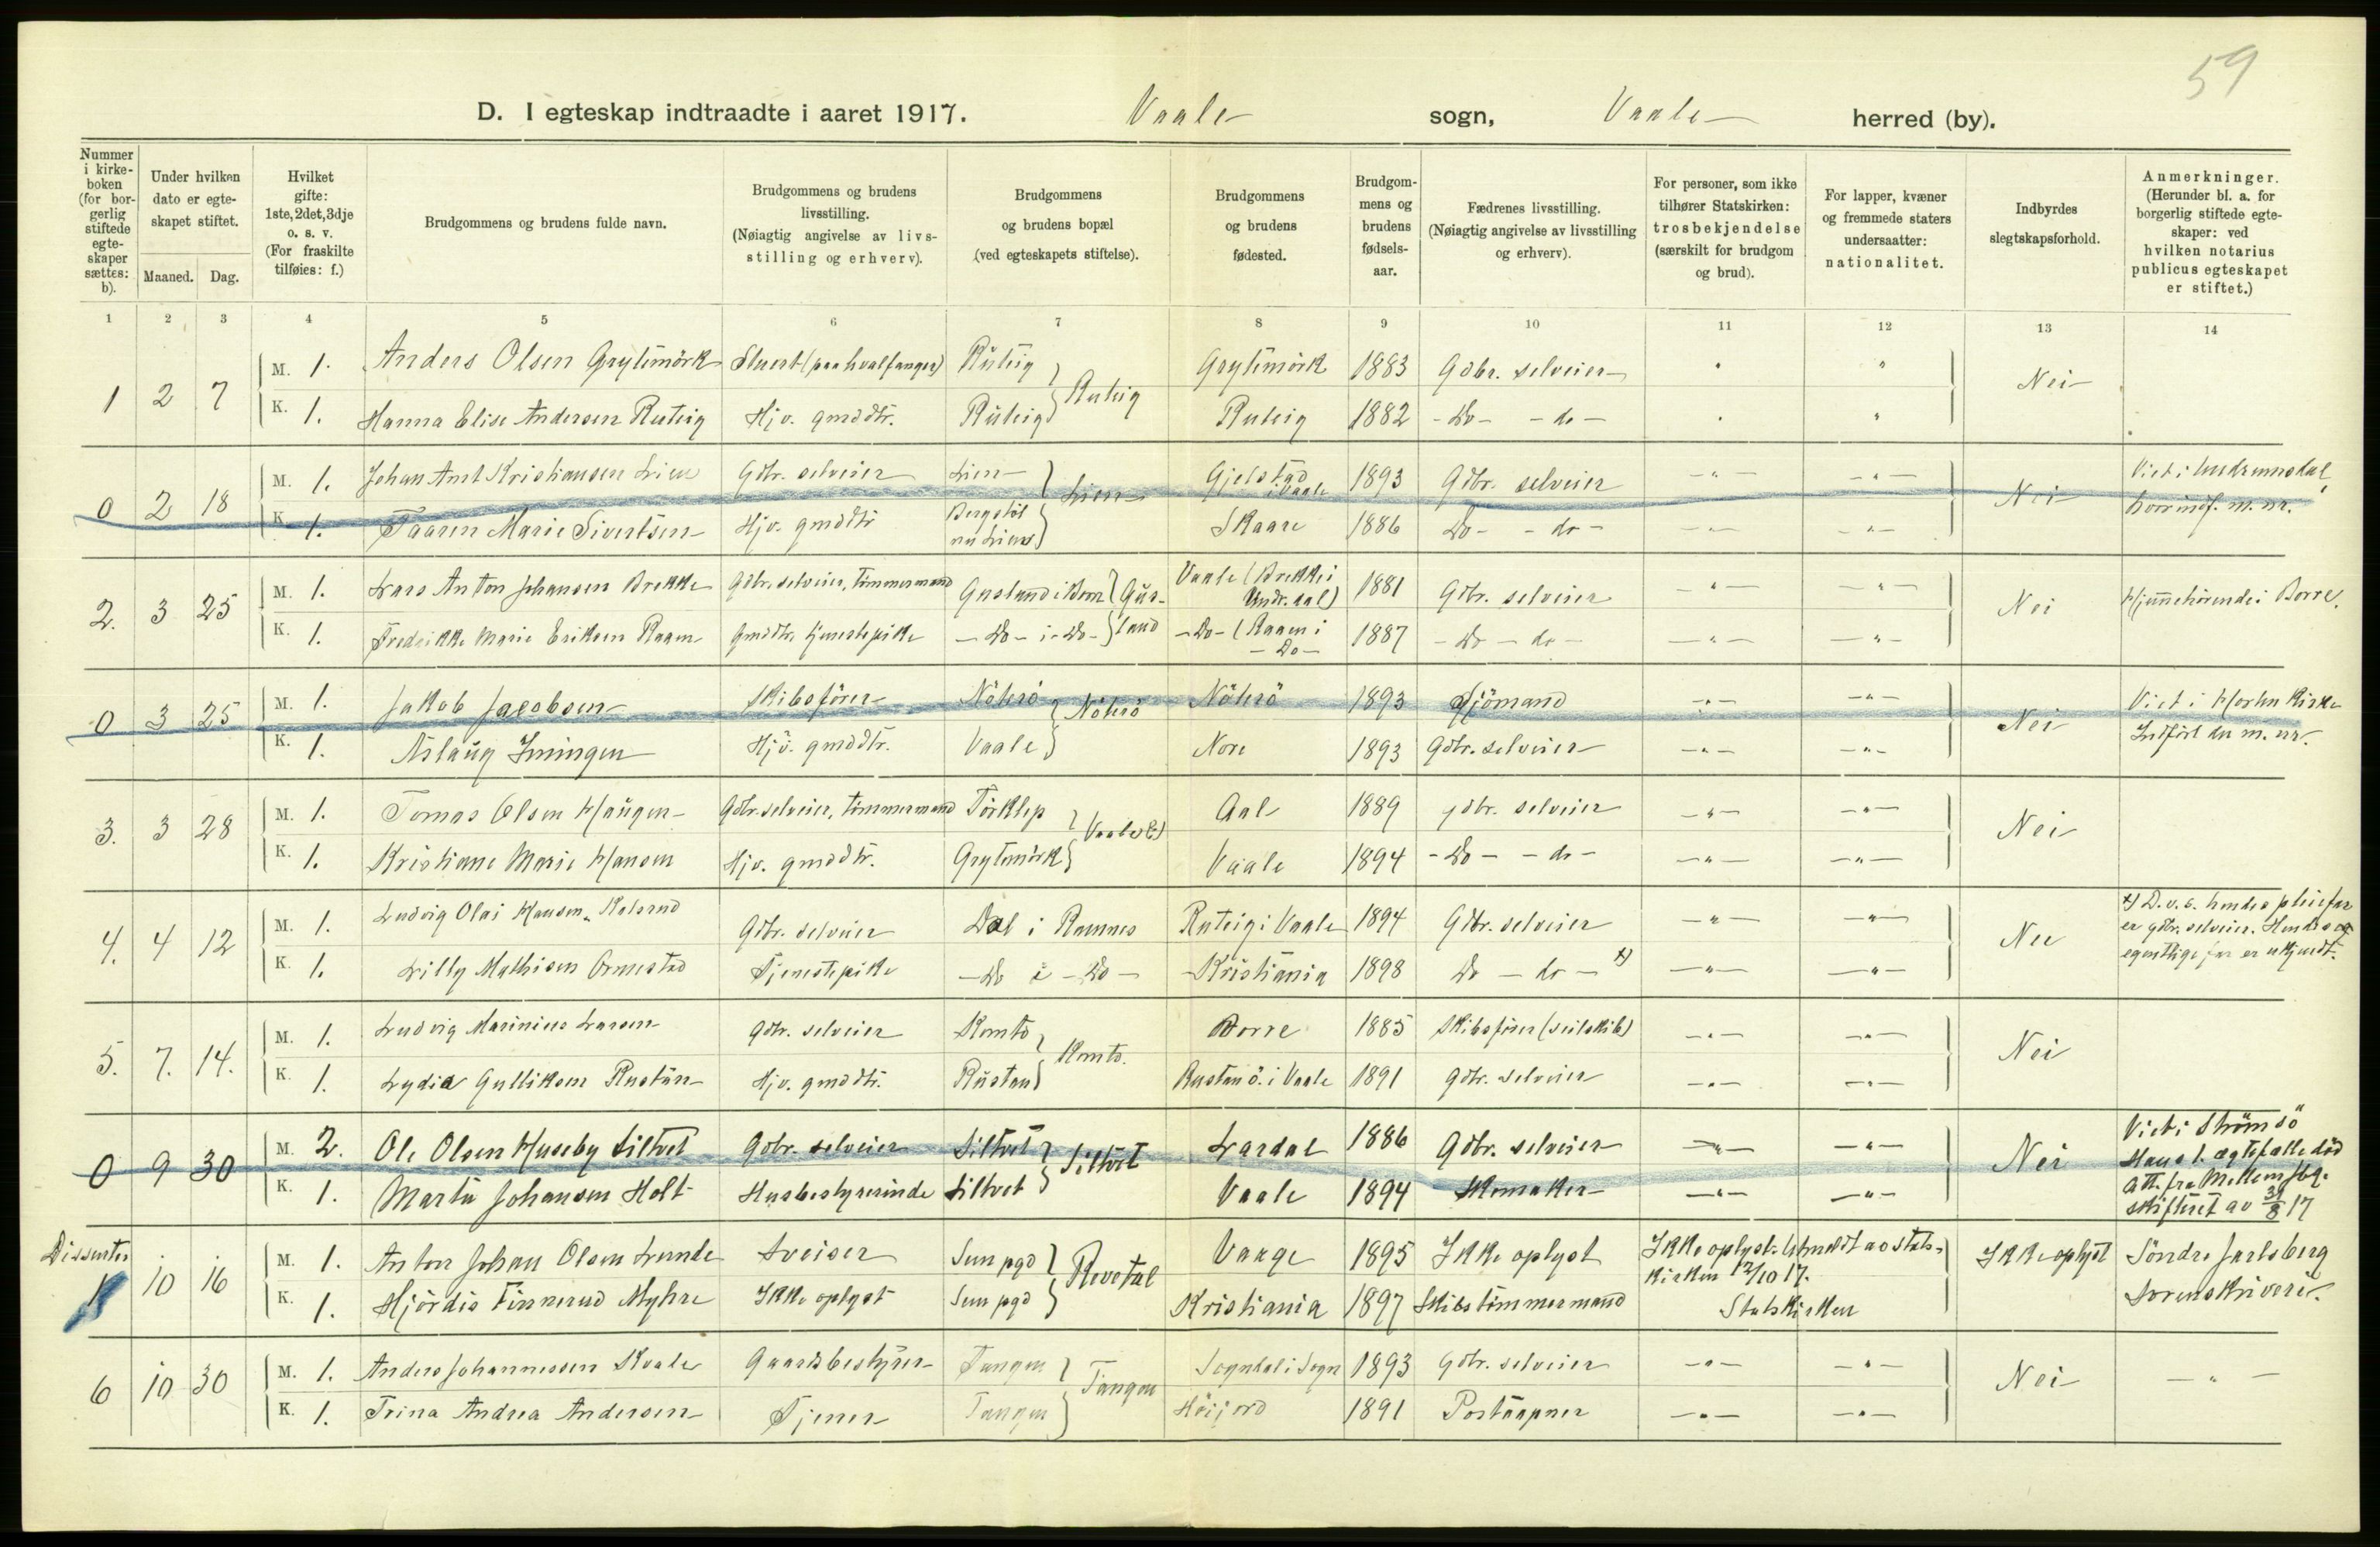 59
D. I egteskap indtraadte i aaret 1917. Vaale sogn, Vaale herred (by).
Nummer i kirke-boken (for bor-gerlig stiftede egte-skaper sættes: b).
Under hvilken dato er egte-skapet stiftet.
Maaned. Dag.
Hvilket gifte: 1ste, 2det, 3dje o. s. v. (For fraskilte tilføies: f.)
Brudgommens og brudens fulde navn.
Brudgommens og brudens livsstilling. (Nøiagtig angivelse av livs-stilling og erhverv).
Brudgommens og brudens bopæl (ved egteskapets stiftelse).
Brudgommens og brudens fødested.
Brudgom-mens og brudens fødsels-aar.
Fædrenes livsstilling. (Nøiagtig angivelse av livsstilling og erhverv).
For personer, som ikke tilhører Statskirken: trosbekjendelse (særskilt for brudgom og brud).
For lapper, kvæner og fremmede staters undersaatter: nationalitet.
Indbyrdes slegtskapsforhold.
Anmerkninger. (Herunder bl. a. for borgerlig stiftede egte-skaper: ved hvilken notarius publicus egteskapet er stiftet.)
1 2 3 4 5 6 7 8 9 10 11 12 13 14
1 2 7 M. 1. Anders Olsen Grytemörk Stuert (paa hvalfanger) Ruteig } Ruteig Grytemörk 1883 Gdbr. selveier " " Nei
K. 1. Hanna Elise Andersen Ruteig Hjv. gmddtr. Ruteig Ruteig 1882 - Do - - do - " "
0 2 18 M. 1. Johan Amt Kristiansen Lien Gdbr. selveier Lien } Lien Gjelstad i Vaale 1893 Gdbr. selveier - " - - " - Nei Viet i Undrumsdal
K. 1. Taaren Marie Sivertsen Hjv. gmddtr nu Lien Skaare 1886 Do - - do - - " - - " - indf. m. nr.
2. 3 25 M. 1. Lars Anton Johansen Brekke Gdbr. selveier, Tömmermand Gusland i Borre } Gus-land Vaale (Brekke i Undr.dal) 1881 Gdbr. selveier - " - - " - Nei Hjemehörende i Borre.
K. 1. Fredrikke Marie Eriksen Raaen gmddtr. tjenestepike - Do - i - Do - - Do - (Raaen i - Do - 1887 - Do - do - - " - - " -
0 3 25 M. 1. Jakob Jacobsen Skibsförer Nöterö } Nöterö Nöterö 1893 Sjömand - " - - " - Nei Viet i Horten Kirke
K. 1. Aslaug Hjv. gmddtr. Vaale Nore 1893 Gdbr. selveier - " - - " - Indfört der m. nr.
3. 3 28 M. 1. Tomas Olsen Haugen Gdbr. selveier, tömmermand Törklep } Vaale Aal 1889 gdbr. selveier - " - - " - Nei
K. 1. Kristiane Marie Hansen Hjv. gmddtr. Grytemörk Vaale 1894 - Do - - do - - " - - " -
4. 4 12 M. 1. Ludvig Olai Hansen Gdbr. selveier Dal i Ramnes Ruteig i Vaale 1894 Gdbr. selveier - " - - " - Nei x) D. v. s. hendes pleiefar er gdbr. selveier. Hendes
K. 1. Lilly Mathisen Ormestad Tjenestepike - Do i - Do - Kristiania 1898 Do - do - x) - " - - " - egentlige far er ukjendt.
5. 7. 14. M. 1. Ludvig Marinius Larsen Gdbr. selveier Komto } Komto. Borre 1885 Skibsförer (seilskib) - " - - " - Nei
K. 1. Lydia Gulliksen Rustan Hjv. gmddtr. Rustan Rustan ö. i Vaale 1891 gdbr. selveier - " - - " -
0 9 30 M. 2. Ole Olsen Huseby Siltvet Gdbr. selveier Siltvet } Siltvet Lardal 1886 Gdbr. selveier - " - - " - Nei Viet i Strömsö Hans 1. ægtefælle död
K. 1. Marta Johansen Holt Husbestyrerinde Siltvet Vaale 1894 Skomaker - " - - " - Att. fra skifteret av 31/8 17
Dissenter
1 10 16 M. 1. Anton Johan Olsen Lunde Sveiser Sem pgd } Revetal Vaage 1895 Ikke oplyst Ikke oplyst. Utmeldt av stats-kirken 12/10 17. Ikke oplyst Söndre Jarlsberg
K. 1. Hjördis Finnerud Myhre Ikke oplyst Sem pgd Kristiania 1897 Skibstömmermand Statskirken Sorenskriveri.
6 10 30 M. 1. Anders Johannessen Kvale Gaardsbestyrer Tangen } Tangen Sogndal i Sogn 1893 gdbr. selveier - " - - " - Nei - " -
K. 1. Trina Andrea Andersen Tjener Tangen Höijord 1891 Postaapner - " - - " -